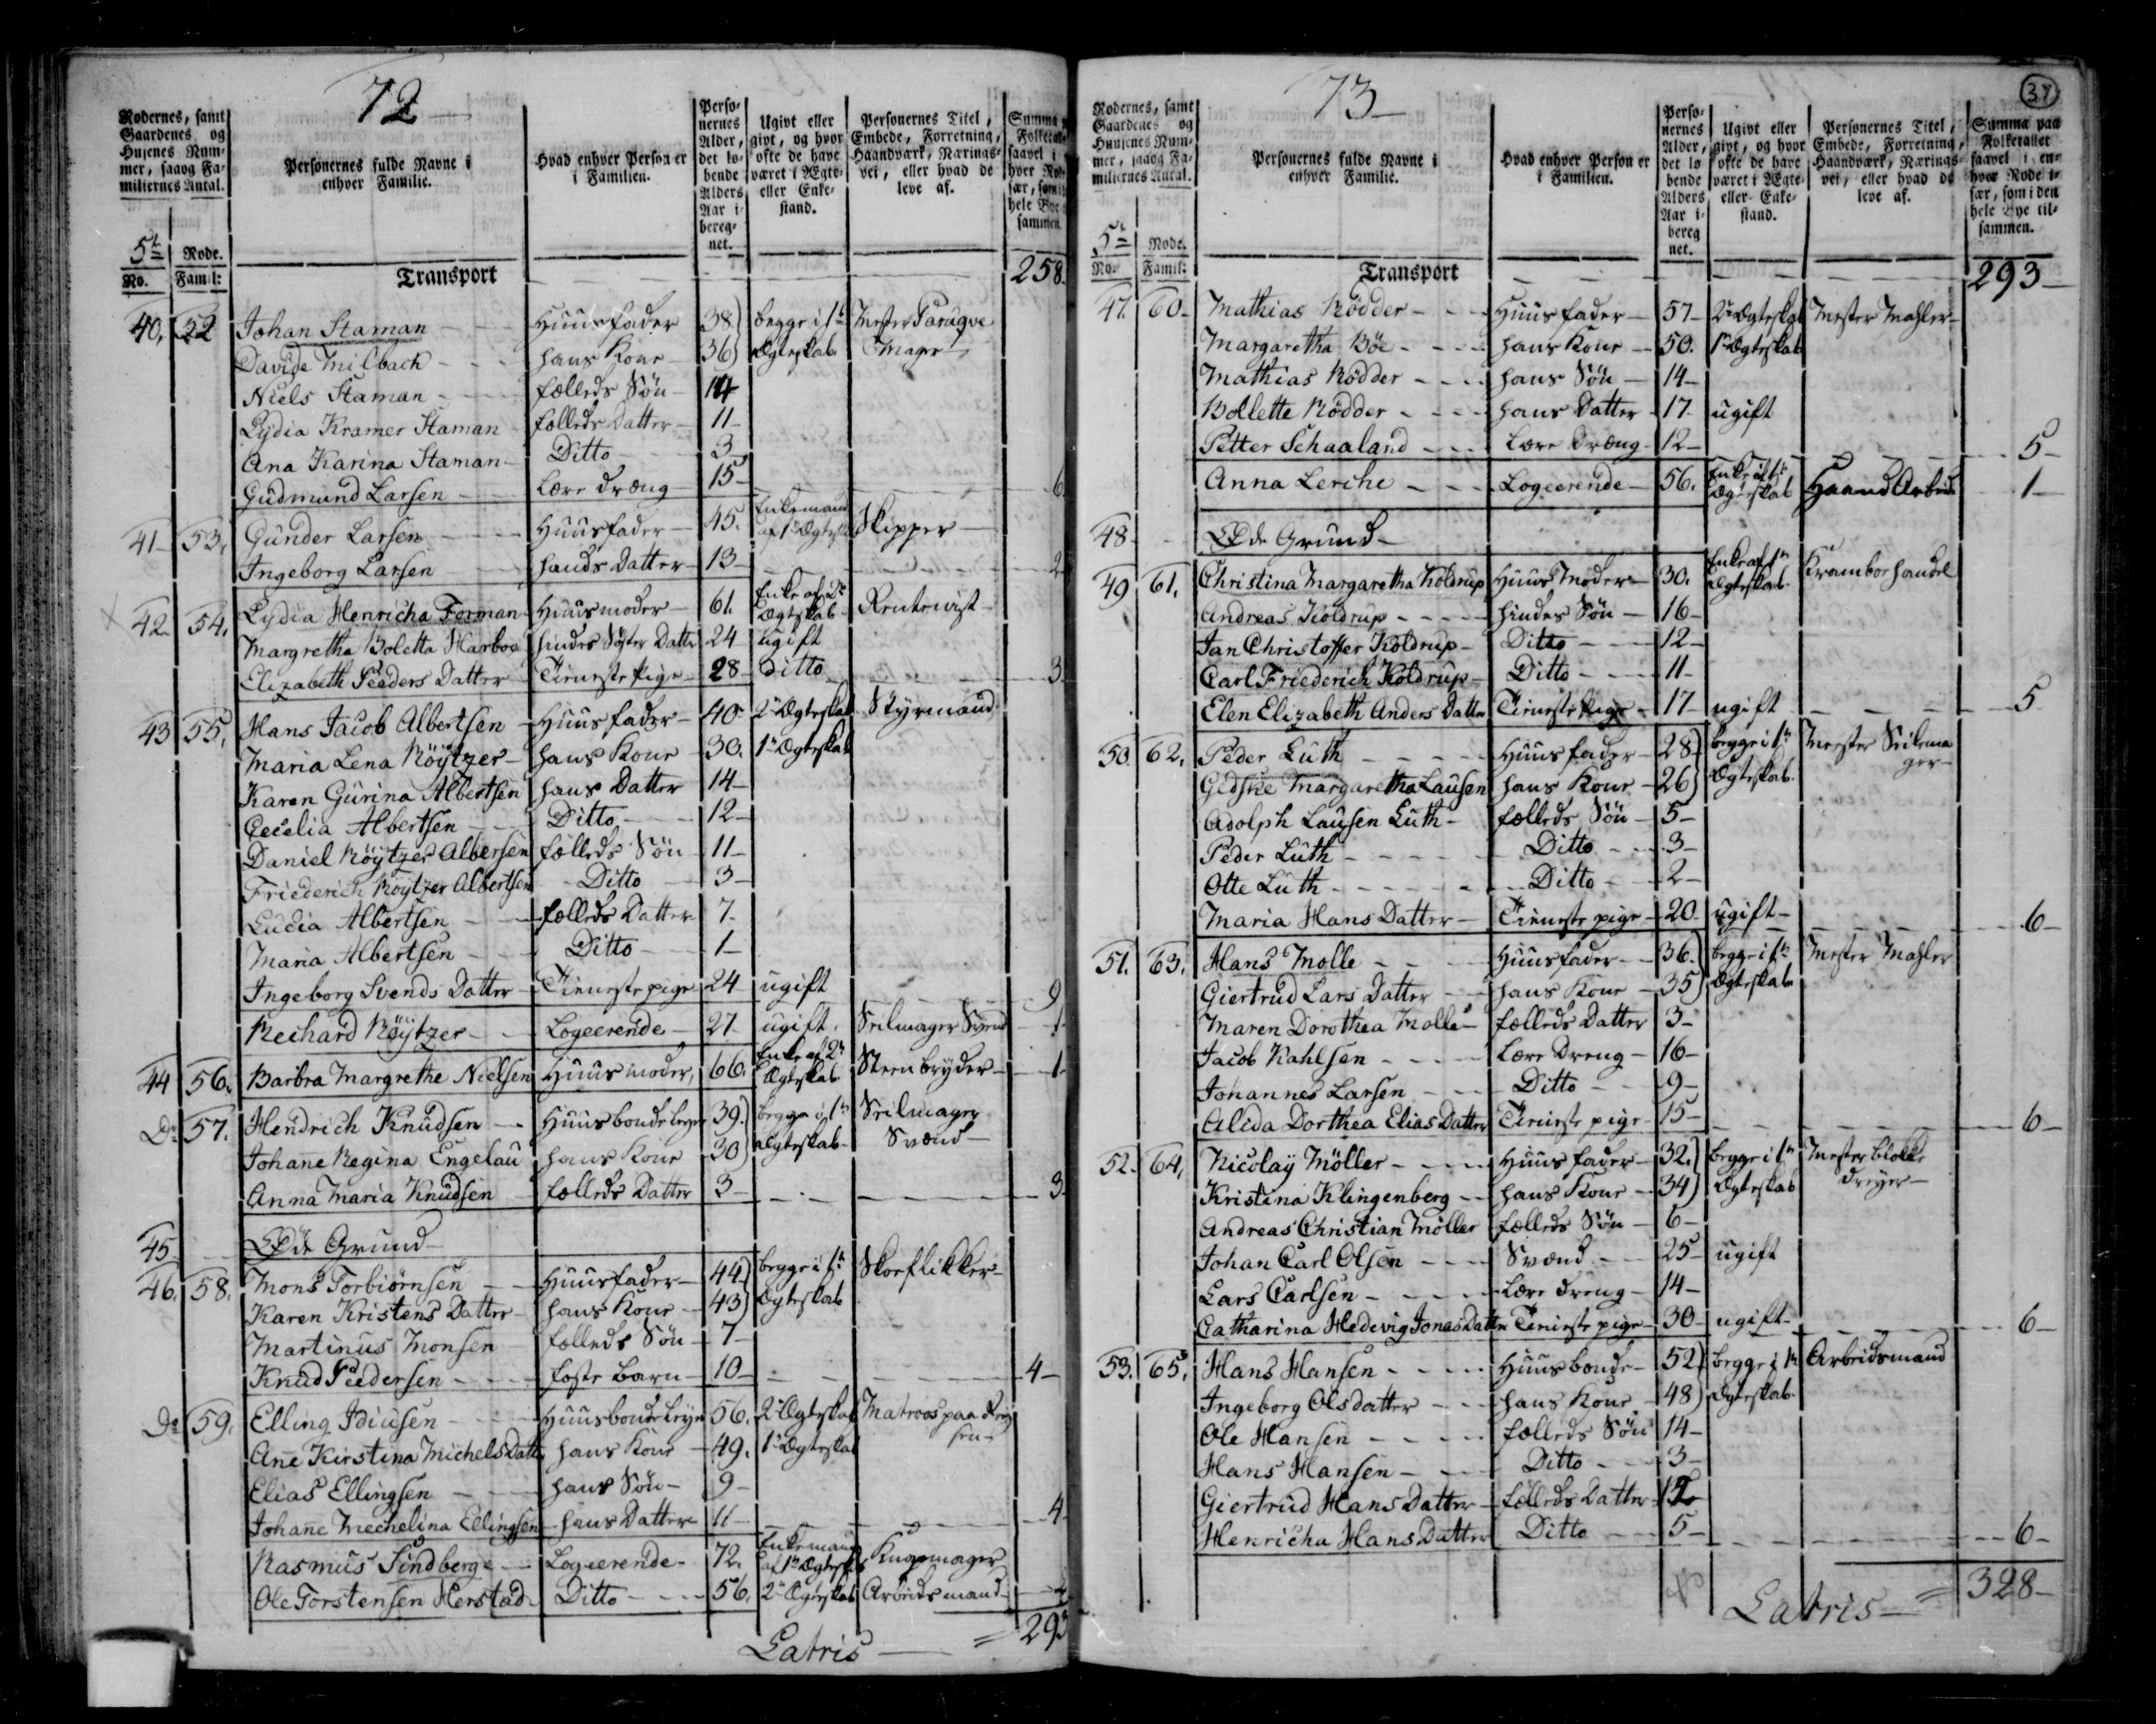 72
Rodernes, samt Gaardenes og Husenes Nummer, saaog Familiernes Antal.
Personernes fulde Navne i enhver Familie.
Hvad enhver Person er i Familien.
Personernes Alder, det løbende Alders Aar iberegnet.
Ugivt eller givt, og hvor ofte de have været i Ægte- eller Enkestand.
Personernes Titel, Embede, Forretning, Haandværk, Næringsvei, eller hvad de leve af.
5te Rode.
No. Famil:
Transport 258
40. 52 Johan Staman Huusfader 38 begge i 1te Ægteskab Mester Paruqve Mager
Davide Milbach hans Kone 36
Niels Staman fælleds Søn 14
Lydia Kramer Staman fælleds Datter 11
Ana Karina Staman Ditto 3
Gudmund Larsen Lære dræng 15 6
41 53. Gunder Larsen Huusfader 45. Enkemand af 1te Ægtesk. Skipper
Ingeborg Larsen hands Datter 13 2
42 54. Lydia Henricha Forman Huusmoder 61. Enke af 2t Ægteskab
Margretha Boletta Harboe hindes Søster Datter 24 ugift
Elizabeth Peeders Datter Tieneste Pige 28 ditto 3
43 55. Hans Jacob Albertsen Huusfader 40 2t Ægteskab Styrmand
Maria Lena Röytzer hans Kone 30. 1te Ægteskab
Karen Gurina Albertsen hans Datter 14
Cecelia Albertsen Ditto 12
Daniel Röytzer Albersen fælleds Søn 11
Friederich Röytzer Albertsen Ditto 3
Lucia Albertsen fælleds Datter 7
Maria Albertsen Ditto 1
Ingeborg Svends Datter Tieneste pige 24 ugift 9
Rechard Röytzer Logeerende 27 ugift. Seilmager Svend 1
44 56. Barbra Margrethe Nielsen Huusmoder, 66. Enke af 2t Ægteskab Steenbryder 1
Do 57. Hendrich Knudsen Huusbonde 39. begge i 1te Ægteskab Seilmager Svænd
Johane Regina Engelau hans Kone 30
Anna Maria Knudsen fælleds Datter 3 3
45 Øde Grund
46. 58. Mons Torbiörnsen Huusfader 44 begge i 1te Ægteskab Skoeflikker
Karen Kristens Datter hans Kone 43
Martinus Monsen fælleds Søn 7
Knud Peedersen foster Barn 10 4
Do 59. Elling Huusbonde 56. 2t Ægteskab Matroos paa
Ane Kirstina Michels Datter hans Kone 49. 1te Ægteskab
Elias Ellingsen hans Søn 9
Johane Mechelina Ellingsen hans Datter 11 4
Rasmus Sindberg Logeerende 72. Enkemand af 1te Ægtesk.
Ole Torstensen Herstad Ditto 56. 2t Ægteskab Arbeidsmand 2
Latris 293
73
37
Rodernes, samt Gaardenes og Husenes Nummer, saaog Familiernes Antal.
Personernes fulde Navne i enhver Familie.
Hvad enhver Person er i Familien.
Personernes Alder, det løbende Alders Aar iberegnet.
Ugivt eller givt, og hvor ofte de have været i Ægte- eller Enkestand.
Personernes Titel, Embede, Forretning, Haandværk, Næringsvei, eller hvad de leve af.
Summa paa Folketallet saavel i enhver Rode især, som i den hele Bye tilsammen.
5te Rode.
No. Famil:
Transport 293
47. 60. Mathias Rödder Huusfader 57 2t Ægteskab Mester Mahler
Margaretha Böe hans Kone 50. 1te Ægteskab
Mathias Rödder hans Søn 14
Bollette Rödder hans Datter 17 ugift
Petter Schaaland Lære Dræng 12 5
Anna Lerche Logeerende 56. Enke af 1te Ægteskab Haand Arbeid 1
48 Øde Grund
49 61. Christina Margaretha Koldrup Huus Moder 30. Enke af 1te Ægteskab Kramboe handel
Andreas Koldrup hindes Søn 16
Jan Christoffer Koldrup Ditto 12
Carl Friederich Koldrup Ditto 11
Elen Elizabeth Anders Datter Tieneste Pige 17 ugift 5
50. 62. Peder Luth Huusfader 28 begge i 1te Ægteskab Mester Seilemager
Gedske Margaretha Lausen hans Kone 26
Adolph Lausen Luth fælleds Søn 5
Peder Luth Ditto 3
Otte Luth Ditto 2
Maria Hans Datter Tieneste pige 20 ugift 6
51. 63. Hans Molle Huusfader 36. begge i 1te Ægteskab Mester Mahler
Giertrud Lars Datter hans Kone 35
Maren Dorothea Molle fælleds Datter 3
Jacob Kahlsen Lære Dreng 16
Johannes Larsen Ditto 9
Aleda Dorthea Elias Datter Tieneste pige 15 6
52. 64. Nicolay Möller Huusfader 32. begge i 1te Ægteskab Mester blokke dreyer
Kristina Klingenberg hans Kone 34
Andreas Christian Möller fælleds Søn 6
Johan Carl Olsen Svænd 25 ugift
Lars Carlsen Lære dreng 14
Catharina Hedevig Jonas Datter Tieneste pige 30 ugift 6
53. 65. Hans Hansen Huusbonde 52 begge i 1te Ægteskab Arbeidsmand
Ingeborg Olsdatter hans Kone 48
Ole Hansen fælleds Søn 14
Hans Hansen Ditto 3
Giertrud Hans Datter fælleds Datter 12
Henricha Hans Datter Ditto 5 6
Latris 328